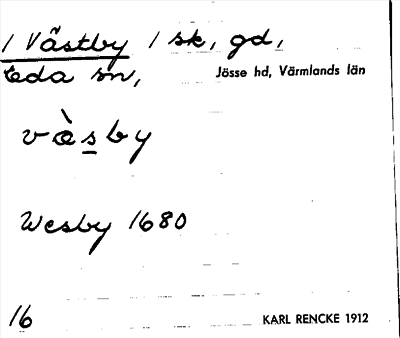 / Västby / sk, gd,
Eda sn,
Jösse hd, Värmlands län
vàsby
Wesby 1680
16
KARL RENCKE 1912